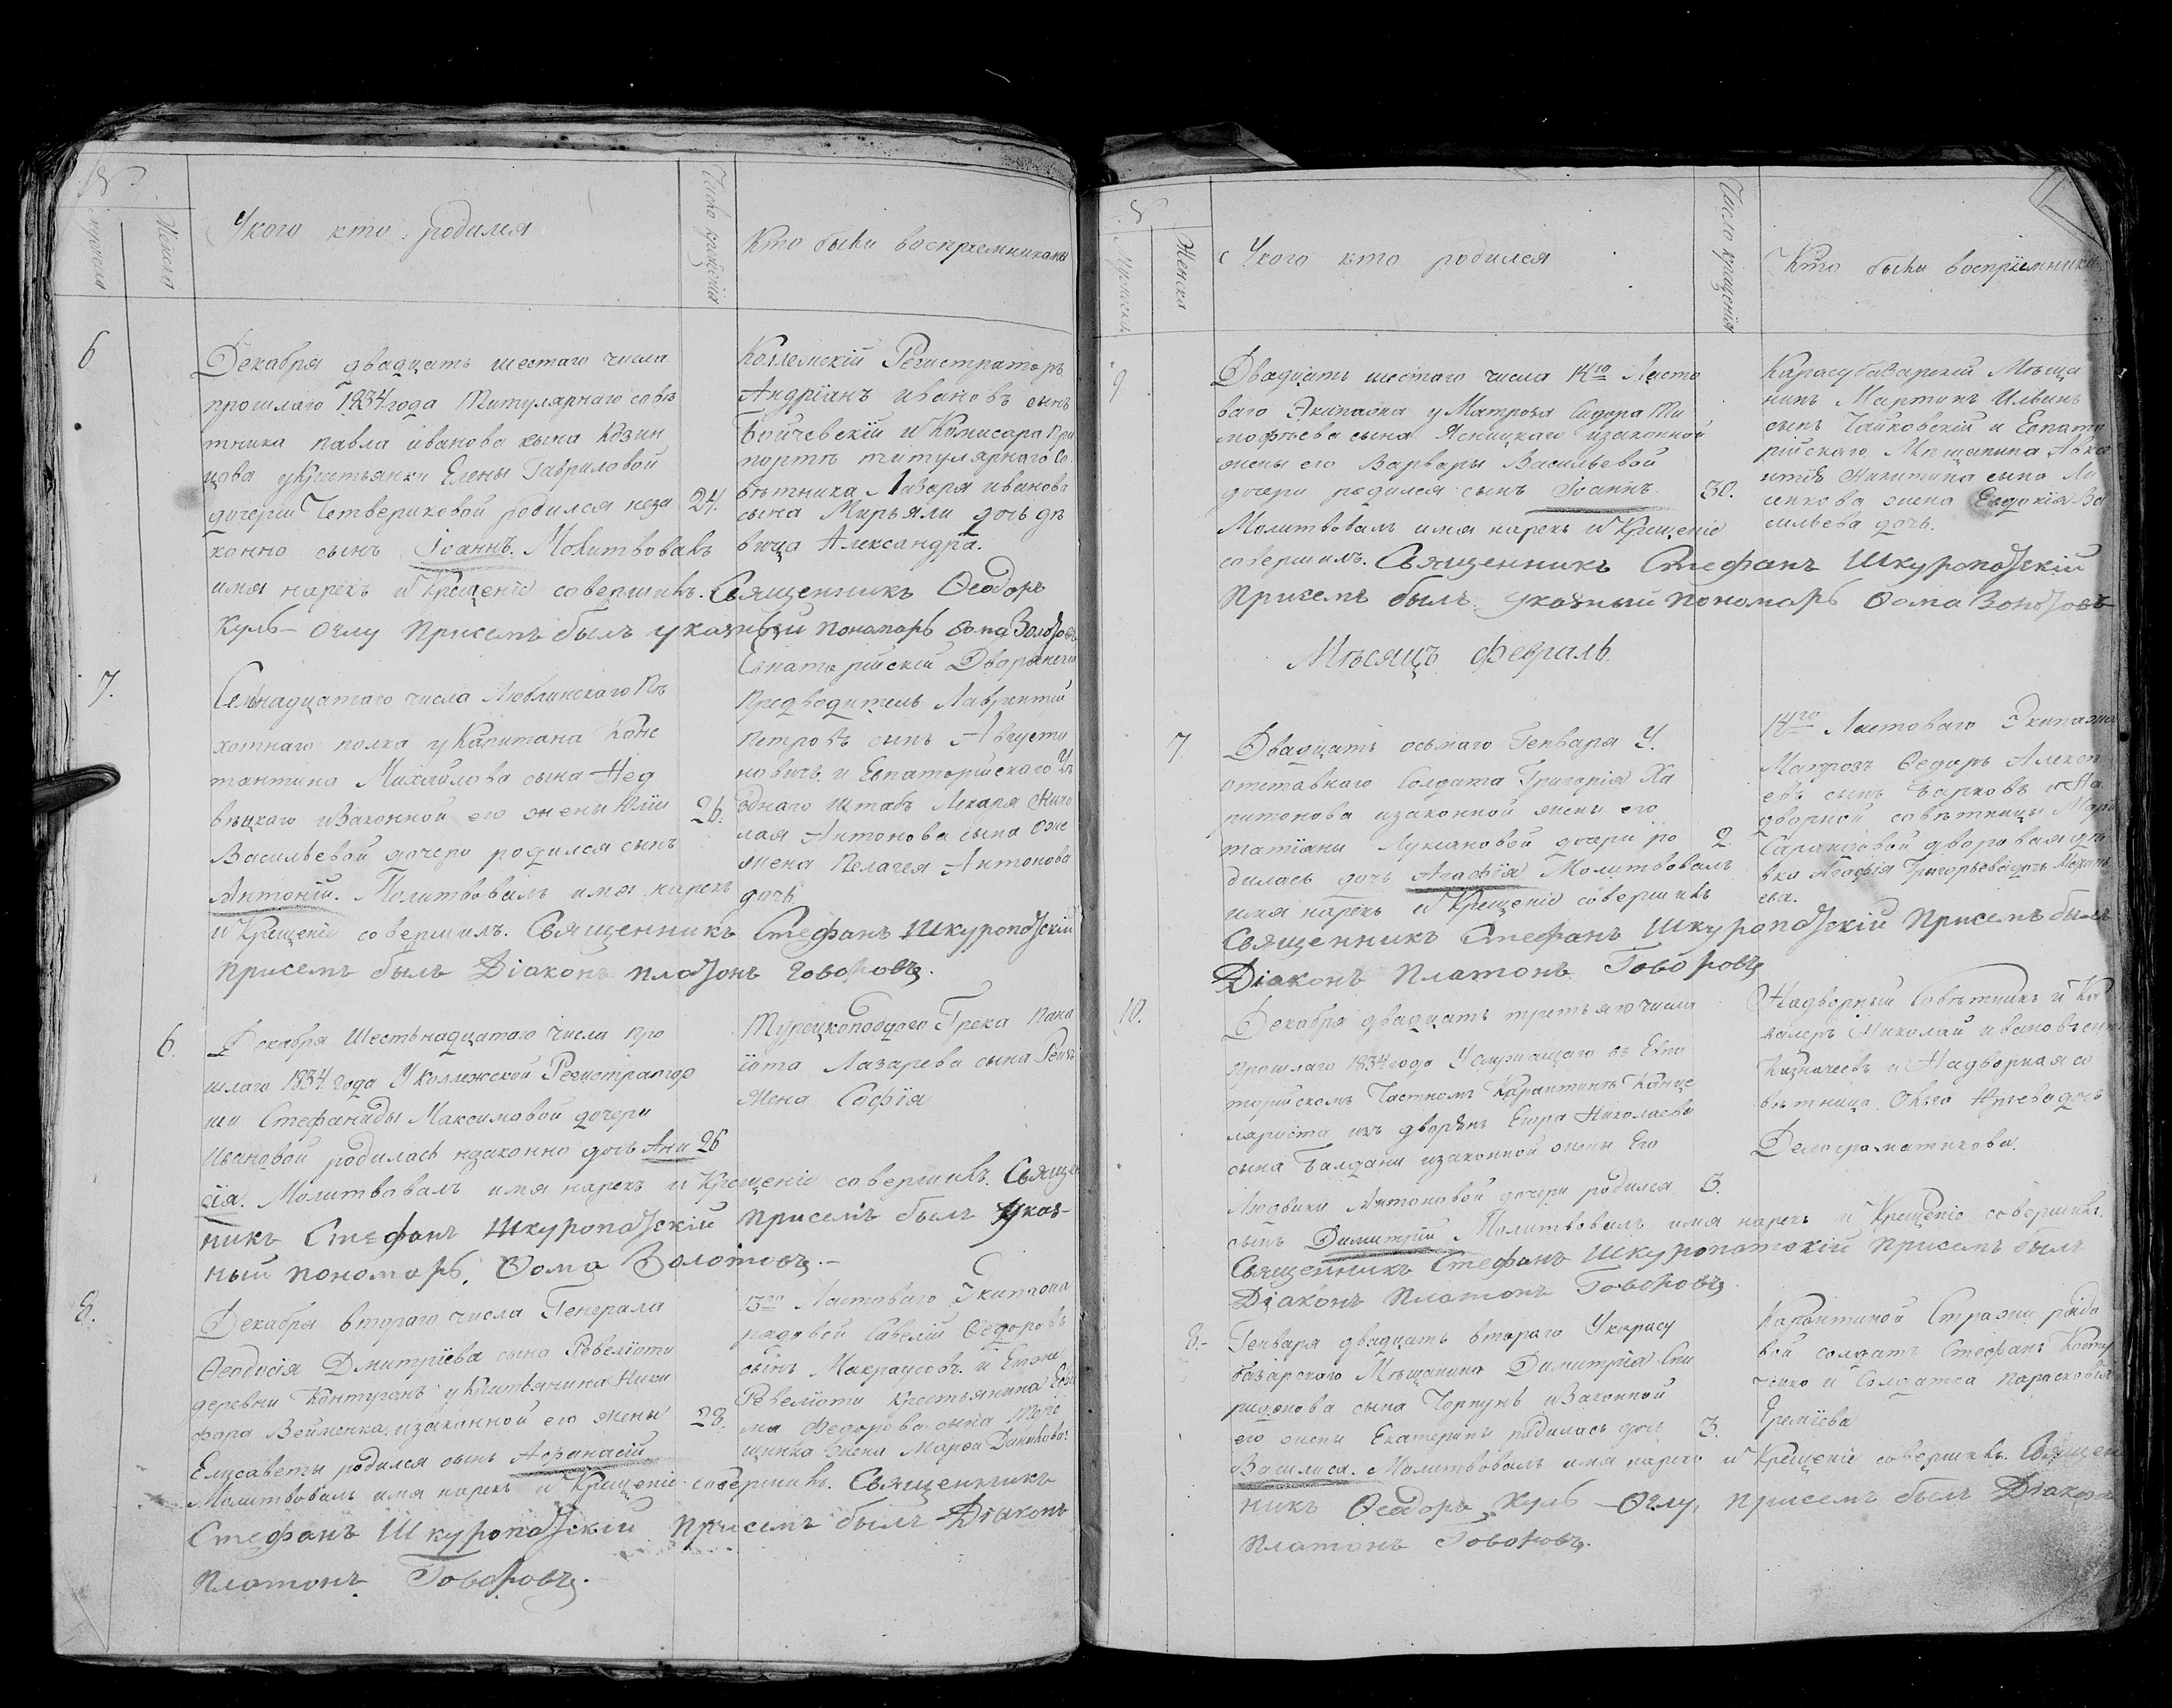 №
Мужеска
Женска
У кого кто родился
Число крещенія
Кто были воспріемниками
6
Декабря двадцать шестаго числа
прошлаго 1834 года Титулярнаго совѣ
тника павла иванова сына Казин
цова у Крестьянки Елены Гавриловой
дочери Четвериковой родился неза
конно сынъ Іоаннъ. Молитвовалъ
имя нарекъ и Крещеніе совершилъ. Священникъ Ѳеодоръ
Куль-Оглу Присемъ былъ указный пономарь Ѳома Золотовъ
24.
Коллежскій Регистраторъ
Андріянъ ивановъ сынъ
Бойчевскій и Комисара При
портѣ титулярнаго Со
вѣтника Лазаря иванова
сына Мирьяли дочь дѣ
вица Александра.
7.
Семнадцатаго числа Люблинскаго Пѣ
хотнаго полка у Капитана Конс
тантина Михайлова сына Нед
вѣцкаго и Законной его жены Юліи
Васильевой дочери родился сынъ
Антоній. Молитвовалъ имя нарекъ
и Крещеніе совершилъ. Священникъ Стефанъ Шкуропатскій
присемъ былъ Діаконъ платонъ Говоровъ.
26.
Евпаторійскій Дворянскій
Предводитель Лаврентій
Петровъ сынъ Августи
новичъ. и Евпаторійскаго Уѣ
зднаго Штабъ Лекаря Нико
лая Антонова сына
жена Пелагея Антонова
дочь.
6.
Декабря Шестьнадцатаго числа про
шлаго 1834. года У Коллежской Регистратор
ши Стефаниды Максимовой дочери
Ивановой родилась незаконно дочь Ани
сія. Молитвовалъ имя нарекъ и Крещеніе совершилъ. Священ
никъ Стефанъ Шкуропатскій присемъ былъ Указ-
ный пономарь, Ѳома Золотовъ.-
26
Турецкоподдаго Грека Пана
іота Лазарева сына
Жена Софія
8.
Декабря втораго числа Генерала
Ѳеодосія Дмитріева сына Ревеліоти
деревни Контуганъ у Крестьянина Ники
фора Вейменка. и законной его жены
Елисаветы родился сынъ Аѳанасій
Молитвовалъ имя нарекъ и Крещеніе совершилъ. Священникъ
Стефанъ Шкуропатскій присемъ былъ Діаконъ
Платонъ Говоровъ.
28.
Ластоваго Экипажа
рядовой Савелій Ѳедоровъ
сынъ Макраусовъ. и
Ревеліоти Крестьянина
Ѳедорова сына
жена Марѳа Данилова.
№
Мужеска
Женска
У кого кто родился
Число крещенія
Кто были воспріемники
9
Двадцать шестаго числа 14го Ласто
ваго Экипажа у Матроза Сидора Ти
мофѣева сына Ясницкаго и законной
жены его Варвары Васильевой
дочери родился сынъ Іоаннъ
Молитвовалъ имя нарекъ и Крещеніе
совершилъ. Священникъ Стефанъ Шкуропатскій
Присемъ былъ указный пономарь Ѳома Золотовъ
30.
Карасубазарскій Мѣща
нинъ Мартинъ Ильинъ
сынъ Чайковскій и Евпато
рійскаго Мѣщанина Авкс
нтія Никитина сына
жена Евдокія Ва
сильева дочь.
Мѣсяцъ Февраль.
7
Двадцать осьмаго Генваря У
отставнаго Солдата Григорія Ха
ритонова и законной жены его
татіаны Лукіановой дочери ро
дилась дочь Агафія Молитвовалъ
имя нарекъ и Крещеніе совершилъ
Священникъ Стефанъ Шкуропатскій Присемъ былъ
Діаконъ Платонъ Говоровъ
2.
14го Ластоваго Экипажа
Матрозъ Ѳедоръ Алексѣ
евъ сынъ Барковъ и На
дворной совѣтницы
дворовая дѣ
вка Агафія Григорьева дочь
ева.
10.
Декабря двадцать третьяго числа
прошлаго 1834 года У служащаго въ Евпа
торійскомъ Частномъ Карантинѣ Канце
ляриста изъ дворянъ Егора Николаева
сына Балдани и законной жены Его
Людвики Антоновой дочери родился
сынъ Димитрій Молитвовалъ имя нарекъ и Крещеніе совершилъ.
Священникъ Стефанъ Шкуропатскій присемъ былъ
Діаконъ Платонъ Говоровъ
3.
Надворный Совѣтникъ и Ка
валеръ Николай ивановъ сынъ
Казначеевъ и Надворная со
вѣтница Ольга дочь
Делаграматикова.
8.-
Генваря двадцать втораго У карасу
базарскаго Мѣщанина Димитрія Спи
ридонова сына Чорпунъ и Законной
его жены Екатерины родилась дочь
Василиса. Молитвовалъ имя нарекъ и Крещеніе совершилъ. Священ
никъ Ѳеодоръ Куль-Оглу, присемъ былъ Діаконъ
Платонъ Говоровъ.
3.
Карантиной Стражи рядо
вой солдатъ Стефанъ
и Солдатка парасковія
Еремѣева